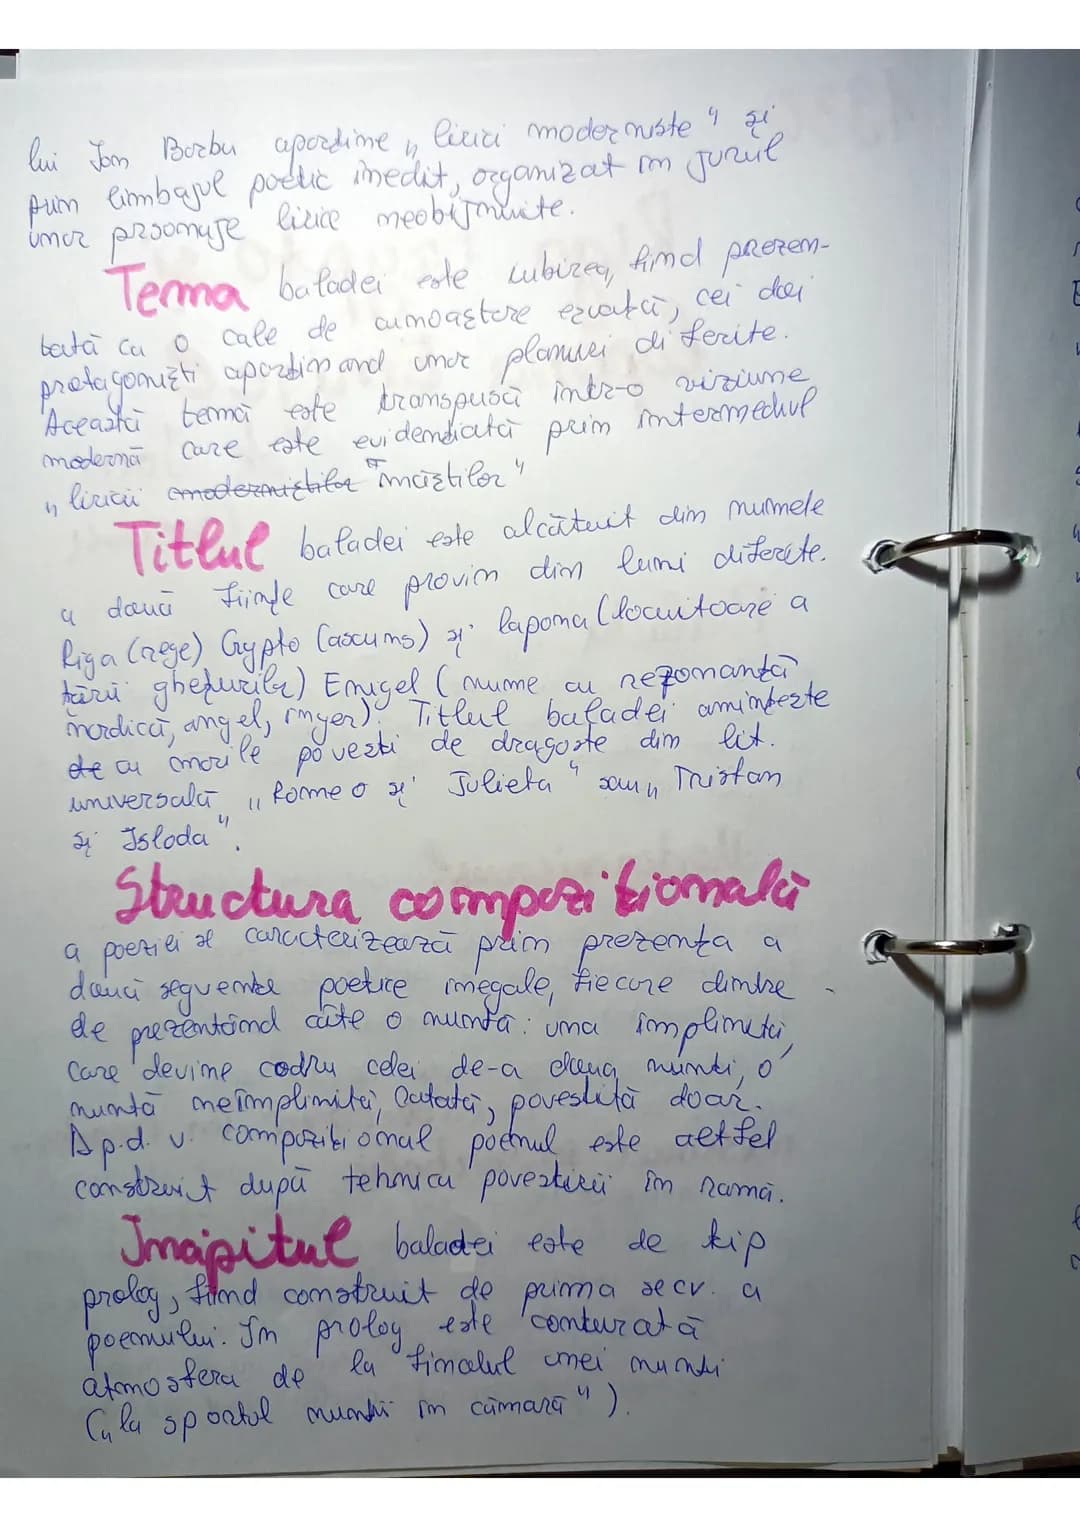 lui Ion Barbu aparține „liricii moderniste" și
prin limbajul poetic inedit, organizat în jurul
unor prsonaje lirice neobișnuite.
Tema baladei este iubirea, fiind prezen-
tată ca o cale de cunoaștere eșuată, cei doi
protagoniști aparținand unor planuri diferite.
Această temă este transpusă într-o viziune
modernă care este evidențiată prin intermediul
„liricii moderniștilor măștilor"
Titlul baladei este alcătuit din numele
a două ființe care provin din lumi diferite.
Riga (rege) Crypto (ascuns) și lapona (locuitoare a
țării ghețurilor) Enigel (nume cu rezonanță
nordică, angel, înger). Titlul baladei amintește
de cu marile povești de dragoste din lit.
universală „Romeo și Julieta" sau „Tristan
și Isloda".
Structura compozițională
a poeziei se caracterizează prin prezența a
două segvențe poetice inegale, fiecare dintre
ele prezentând câte o nuntă: una împlinită,
care devine cadru celei de-a doua nunți, o
nuntă neîmplinită, povestită doar.
D.p.d.v. compozițional poemul este astfel
construit după tehnica povestirii în ramă.
Început baladei este de tip
prolog, fiind construit de prima secv. a
poemului. În prolog este conturată
atmosfera de la finalul unei nunți
(„la spartul nunții în cămară").